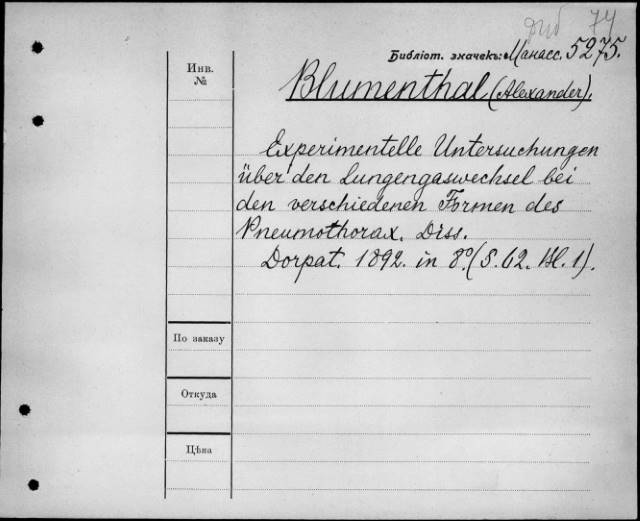 77
Библіот. значекъ: Манасс. 5275.
Инв.
№
Blumenthal (Alexander).
Experimentelle Untersuchungen
über den Lungengaswechsel bei
den verschiedenen Formen des
Pneumothorax. Diss.
Dorpat. 1892. in 8º. (S. 62. Bl. 1).
По заказу
Откуда
Цѣна